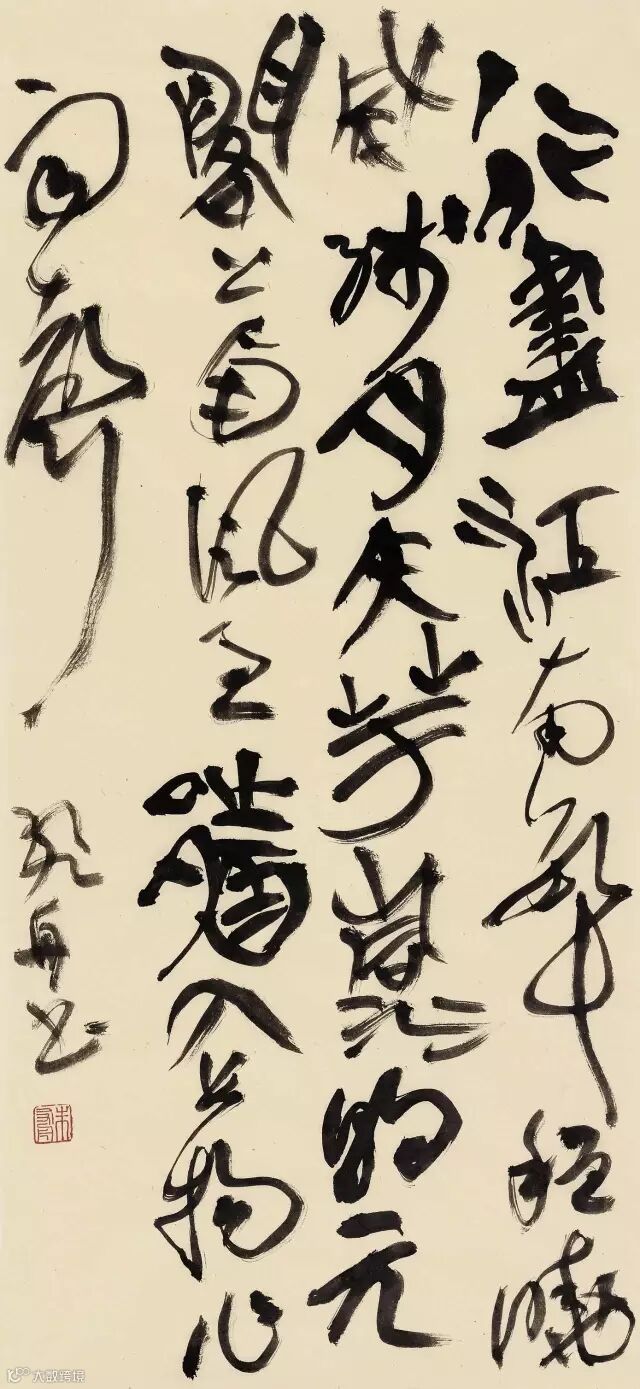 行盡江南數十程曉
殘月入華清朝元
閣上西風急都入長楊作
雨聲
書
大数跨境